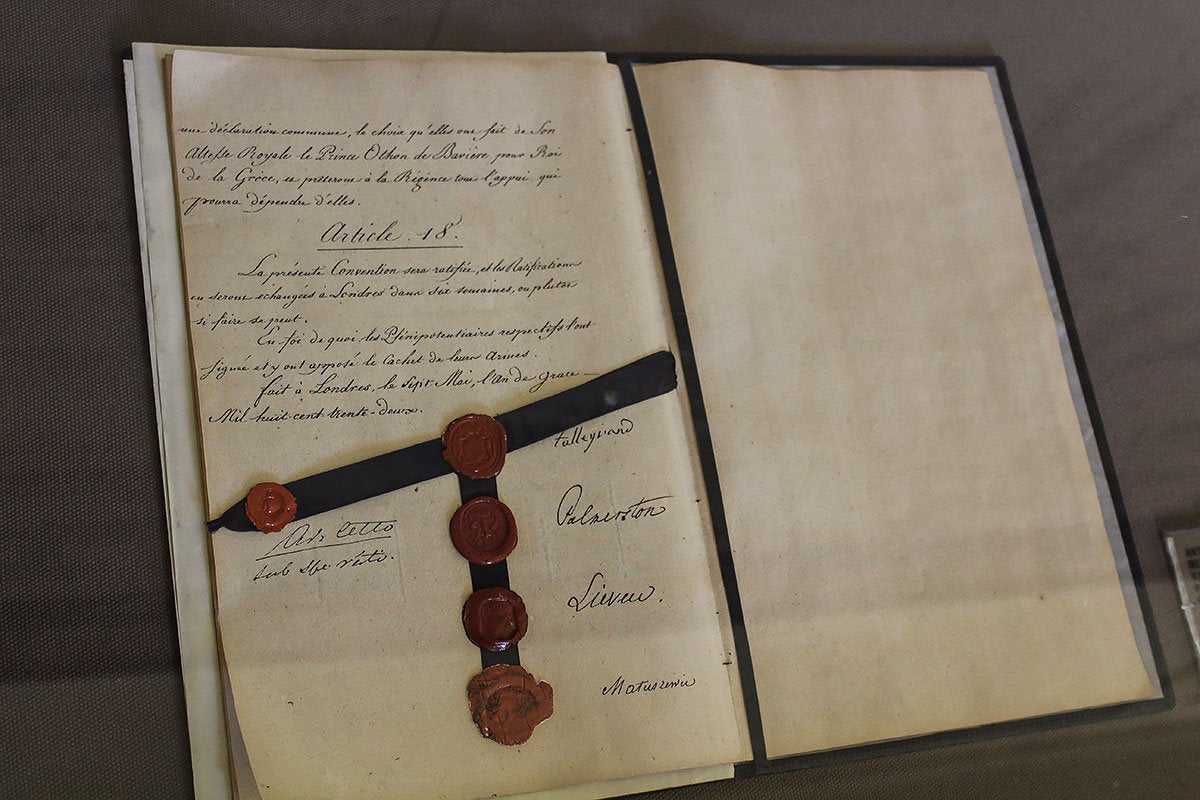 une déclaration commune, le choix qu'elles ont fait de Son
Altesse Royale le Prince Othon de Bavière, pour Roi
de la Grèce, et prêteront à la Régence tout l'appui qui
pourra dépendre d'elles.
Article . 18.
La présente Convention sera ratifiée, et les Ratifications
en seront échangées à Londres dans six semaines, ou plutôt
si faire se peut.
En foi de quoi les Plénipotentiaires respectifs l'ont
signée et y ont apposé le Cachet de leurs Armes.
fait à Londres, le Sept Mai, l'An de Grace
Mil huit-cent-trente-deux.
Talleyrand
Palmerston
A de Cetto
sub spe rati.
Lieven.
Matuszewic